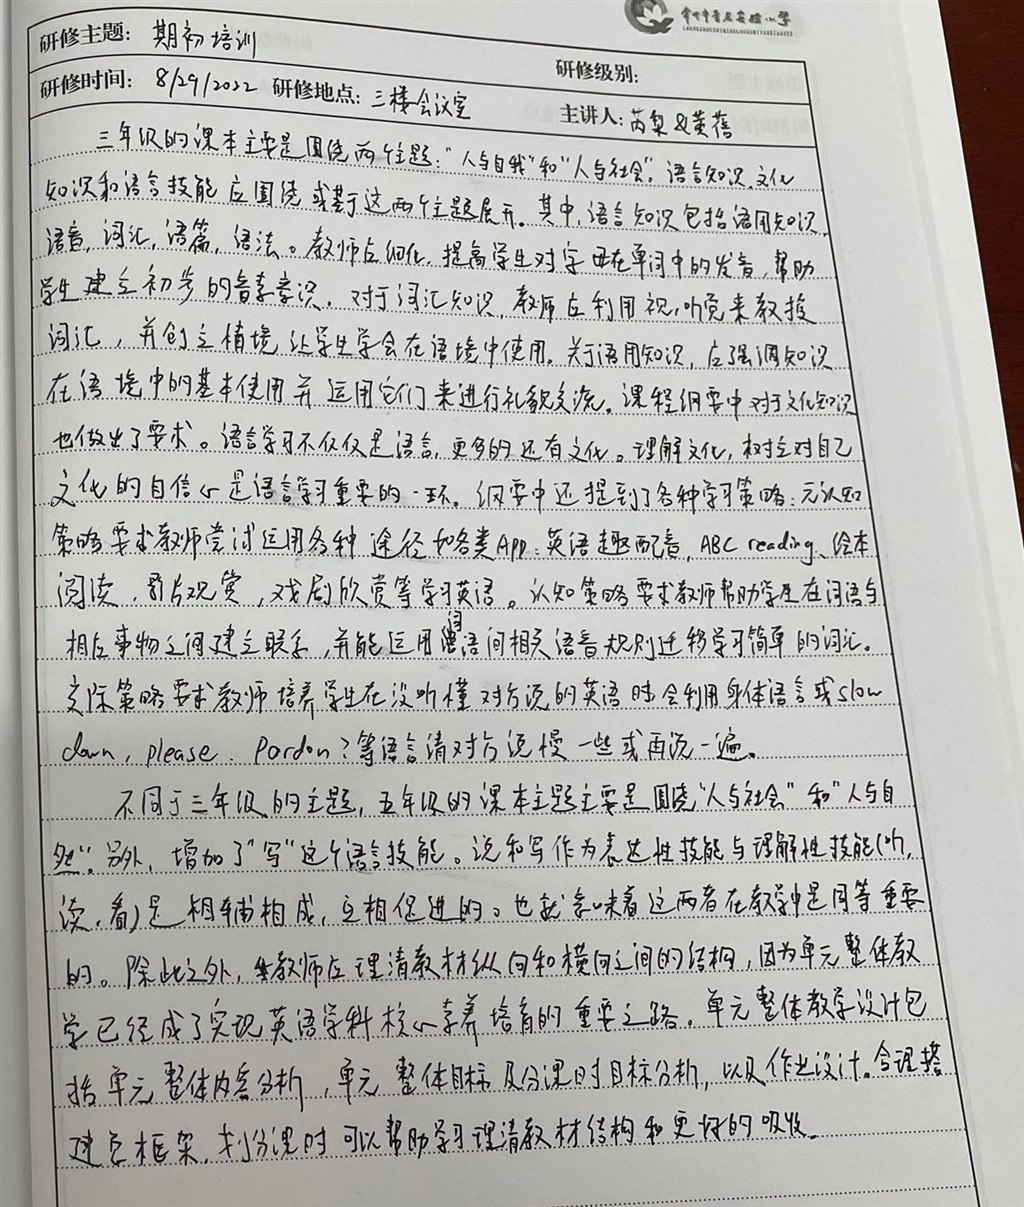 研修主题: 期初培训
研修级别:
研修时间: 8/29/2022 研修地点: 三楼会议室 主讲人:
三年级的课本主要是围绕两个主题:“人与自我”和“人与社会”。语言知识、文化
知识和语言技能应围绕或基于这两个主题展开。其中,语言知识包括语用知识,
语音,词汇,语篇,语法。教师应细化,提高学生对字母在单词中的发音,帮助
学生建立初步的音素意识。对于词汇知识,教师应利用视,听觉来教授
词汇,并创立情境让学生学会在语境中使用。关于语用知识,应强调知识
在语境中的基本使用并运用它们来进行礼貌交流。课程纲要中对于文化知识
也做出了要求。语言学习不仅仅是语言,更多的还有文化。理解文化,树立对自己
文化的自信心是语言学习重要的一环。纲要中还提到了各种学习策略:元认知
策略要求教师尝试运用各种途径如各类App:英语趣配音,ABC reading、绘本
阅读,影片观赏,戏剧欣赏等学习英语。认知策略要求教师帮助学生在词语与
相应事物之间建立联系,并能运用词语间相关语音规则迁移学习简单的词汇。
交际策略要求教师培养学生在没听懂对方说的英语时会利用身体语言或slow
down, please. Pardon?等语言请对方说慢一些或再说一遍。
不同于三年级的主题,五年级的课本主题主要是围绕“人与社会”和“人与自
然”。另外,增加了“写”这个语言技能。说和写作为表达性技能与理解性技能(听,
读,看)是相辅相成,互相促进的。也就意味着这两者在教学中是同等重要
的。除此之外,教师应理清教材纵向和横向之间的结构,因为单元整体教
学已经成了实现英语学科核心素养培育的重要之路。单元整体教学设计包
括单元整体内容分析,单元整体目标及分课时目标分析,以及作业设计。合理搭
建它框架,划分课时可以帮助学习理清教材结构和更好的吸收。